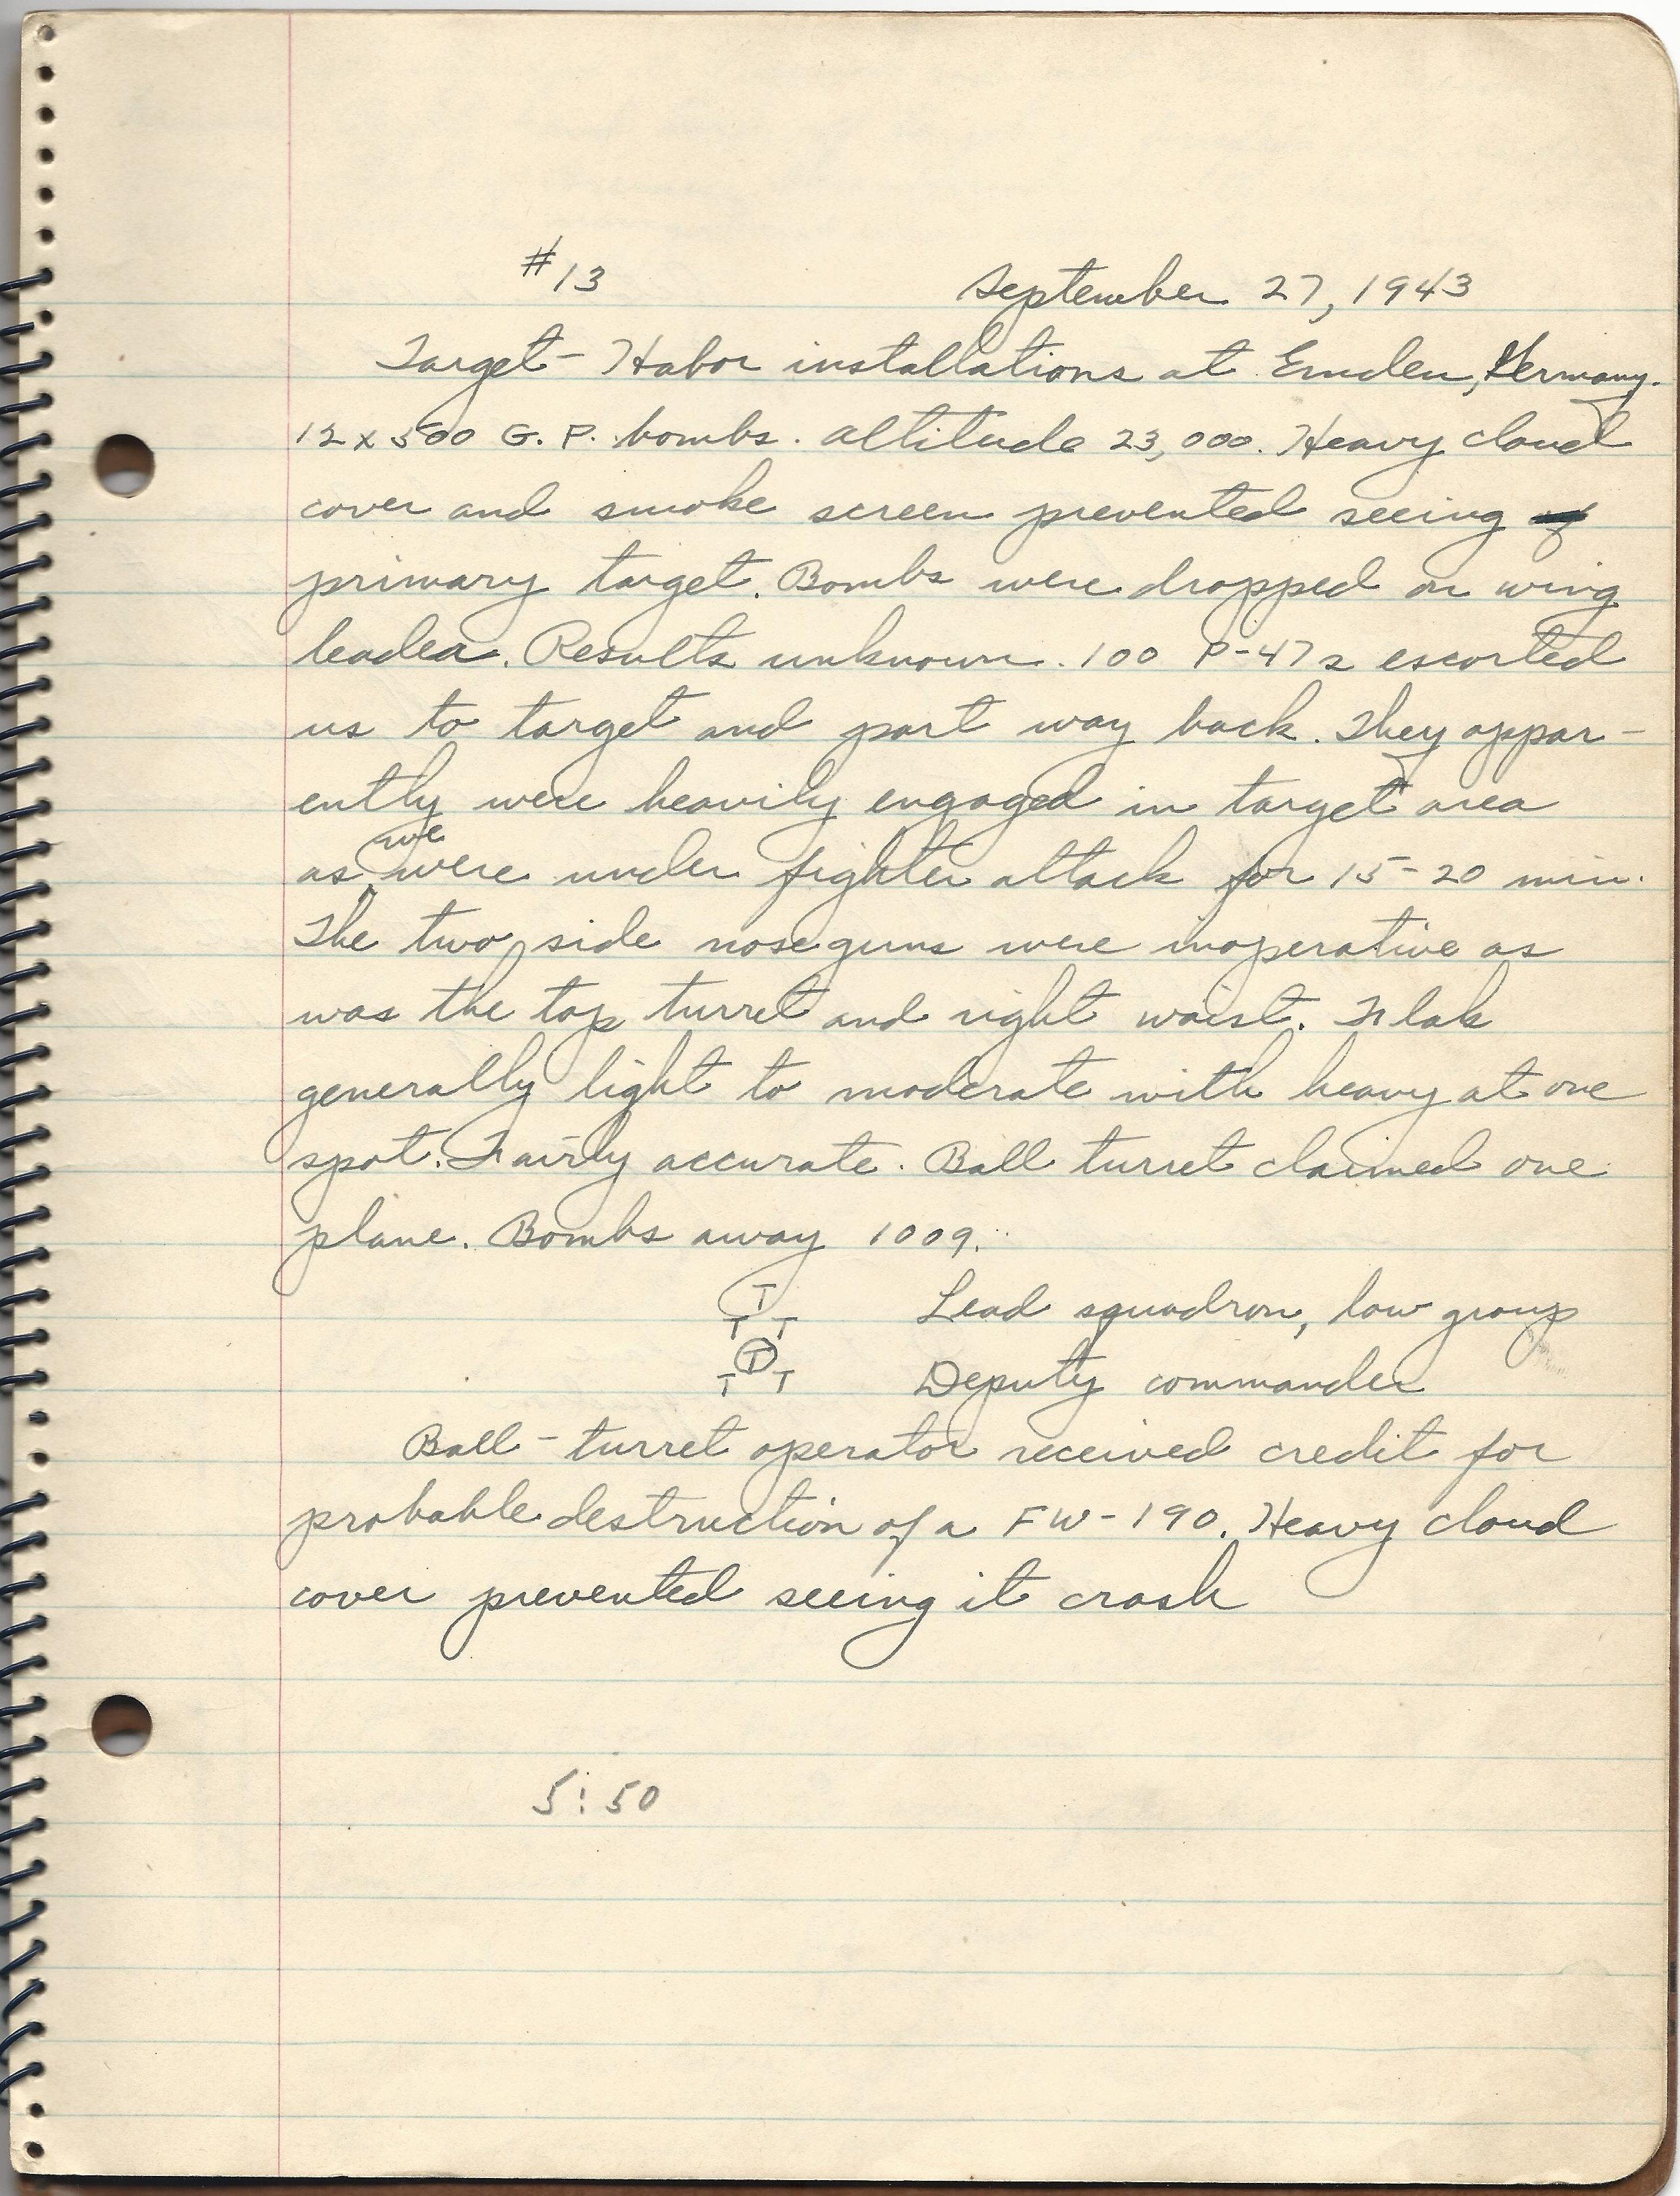 #13 September 27, 1943
Target - Habor installations at Emden, Germany.
12 x 500 G. P. bombs. Altitude 23,000. Heavy cloud
cover and smoke screen prevented seeing
primary target. Bombs were dropped on wing
leader. Results unknown. 100 P-47s escorted
us to target and part way back. They appar-
ently were heavily engaged in target area
as we were under fighter attack for 15-20 min.
The two side nose guns were inoperative as
was the top turret and right waist. Flak
generally light to moderate with heavy at one
spot. Fairly accurate. Ball turret claimed one
plane. Bombs away 1009.
T Lead squadron, low group
T T
T Deputy commander
T T
Ball-turret operator received credit for
probable destruction of a FW-190. Heavy cloud
cover prevented seeing it crash
5:50